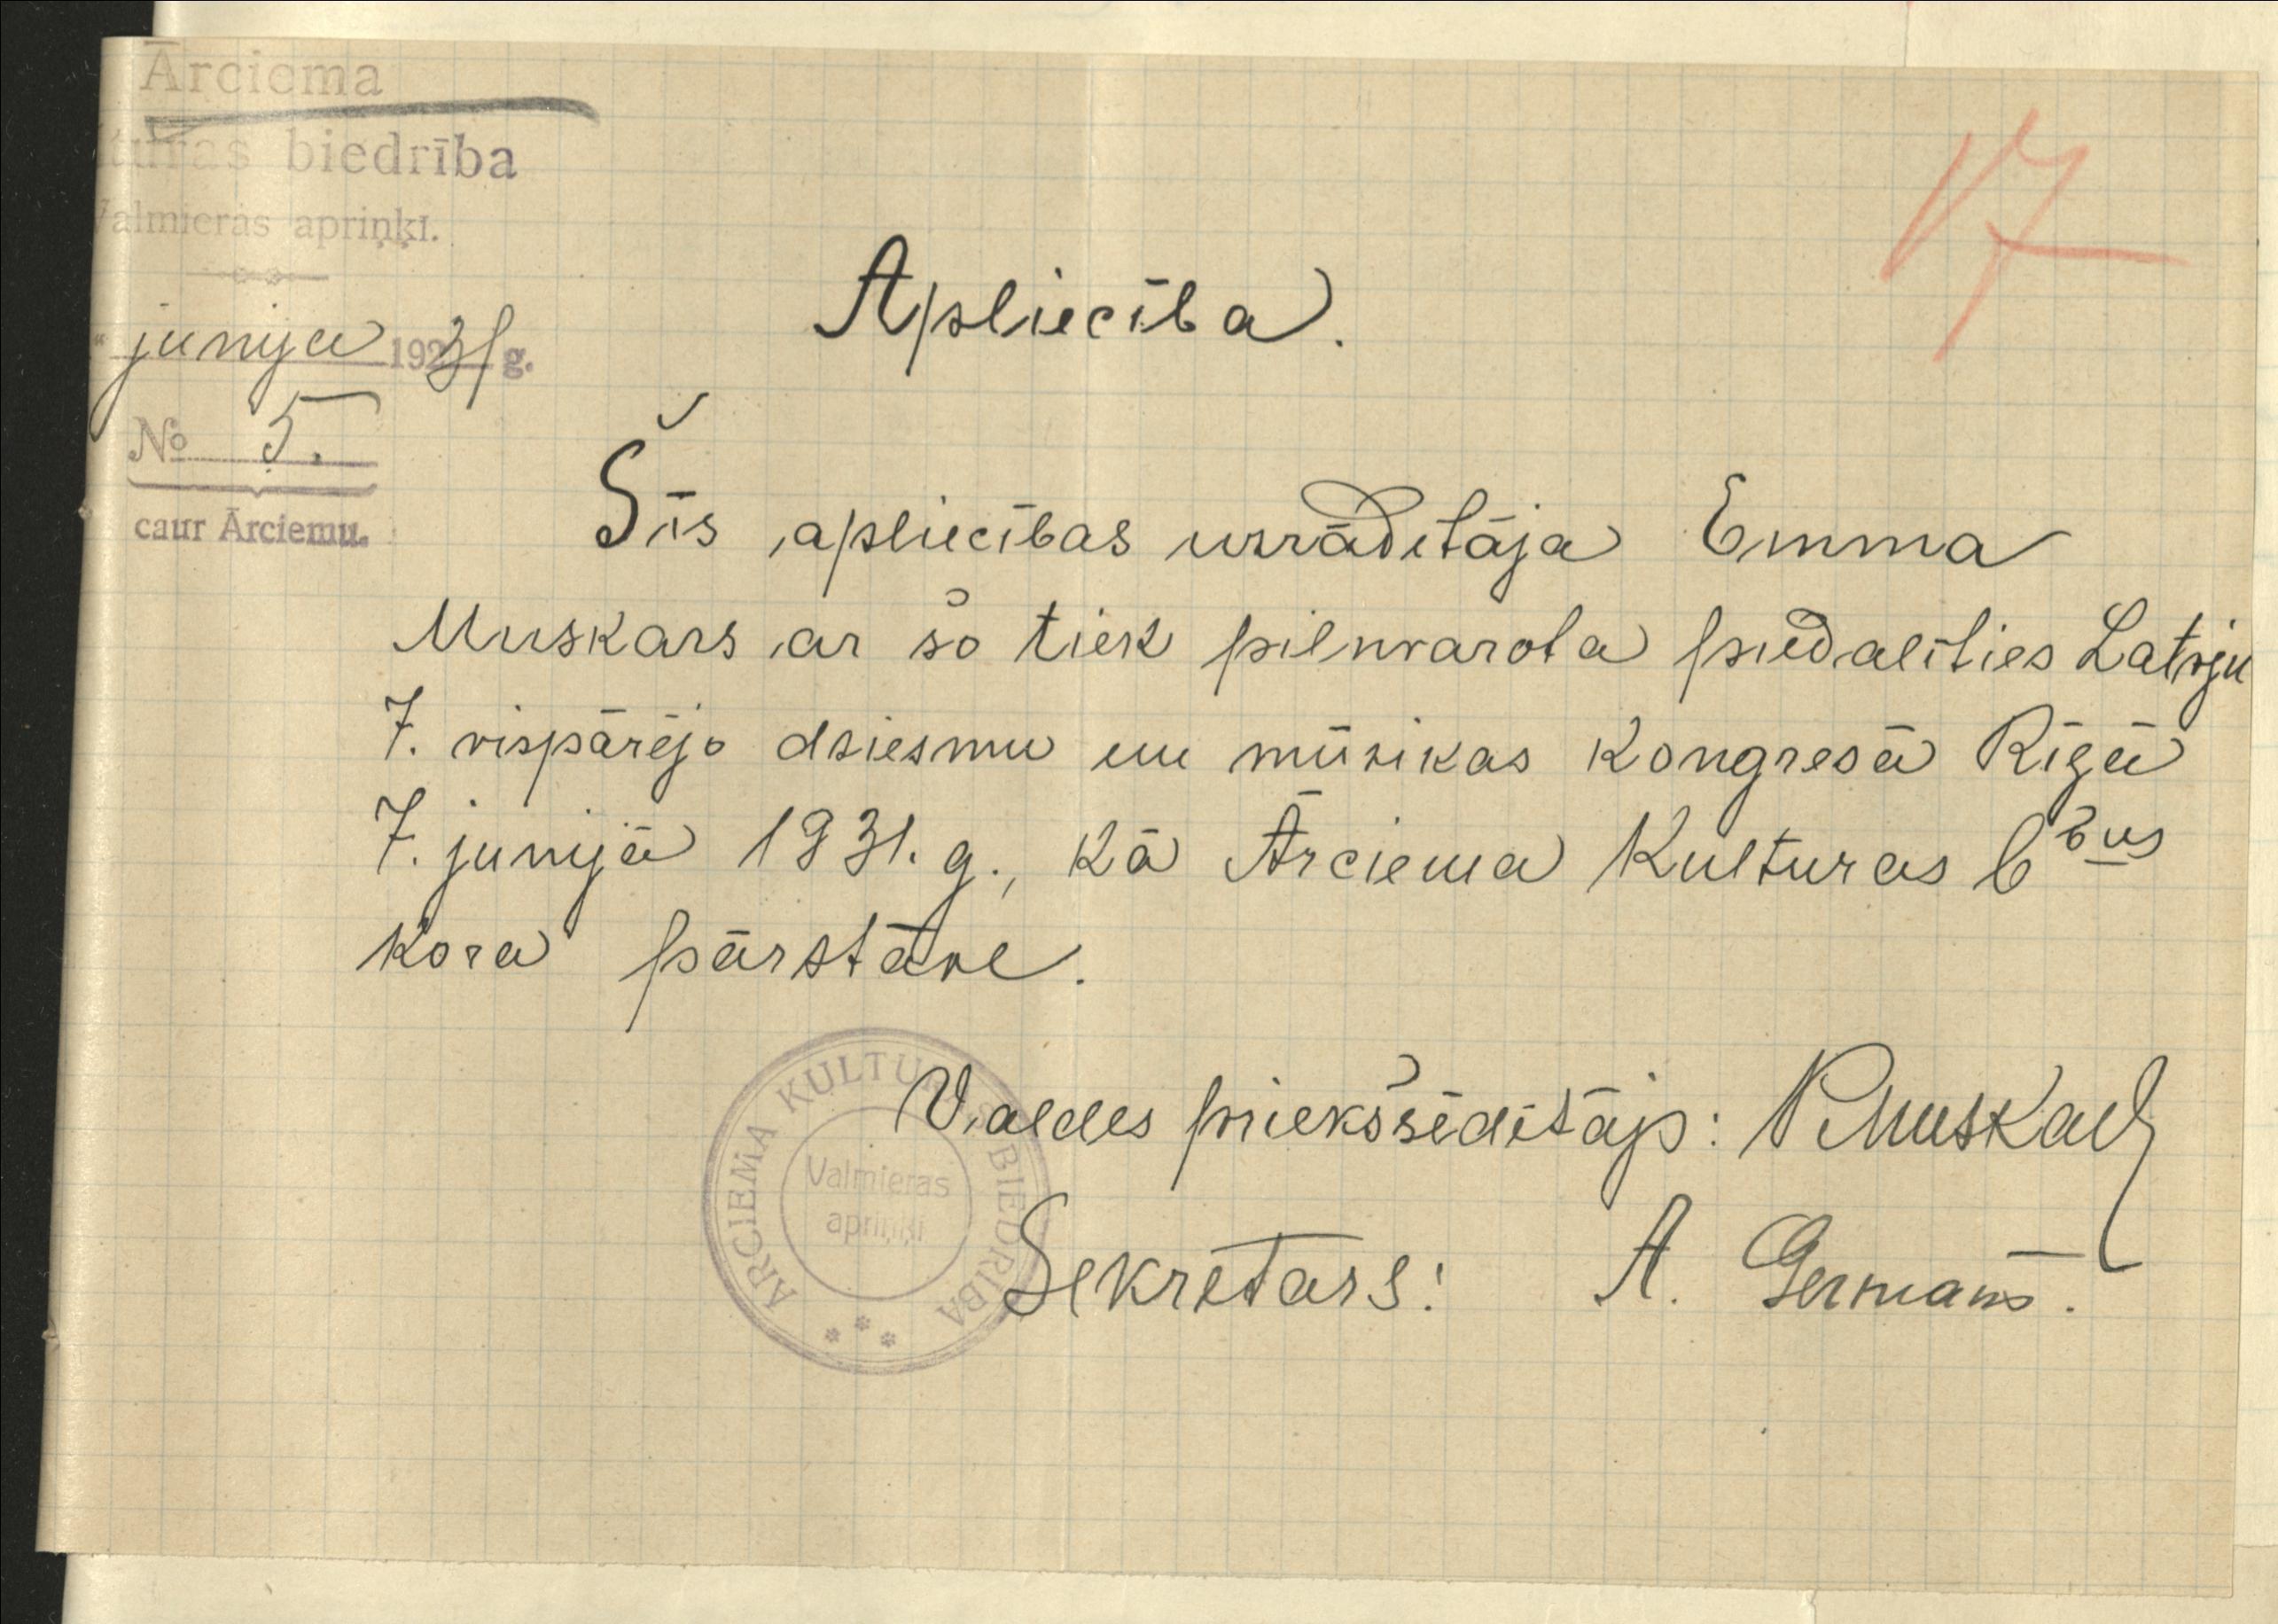 Ārciema
turas biedrība
Valmieras apriņķī.
" junija 1931 g.
17
No 5.
caur Ārciemu.
Apliecība.
Šīs apliecības uzrādītāja Emma
Muskars ar šo tiek pilnvarota piedalīties Latvju
7. vispārējo dziesmu un mūzikas kongresā Rīgā
7. junijā 1931. g., kā Ārciema Kulturas b-bas
kora pārstāve.
Valdes priekšsēdētājs:
Sekretārs: A. Germans.
ĀRCIEMA KULTURAS BIEDRĪBA
Valmieras
apriņķī